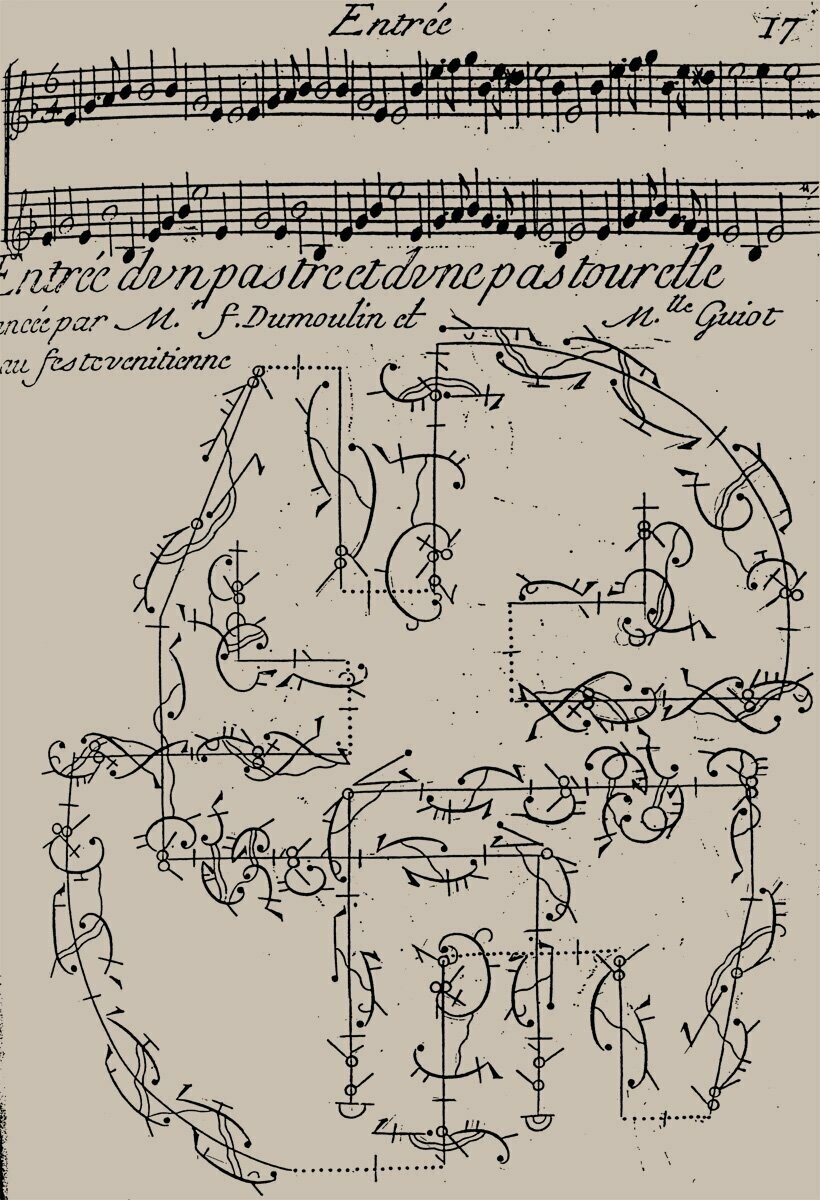 Entrée 17
6
4
Entrée dvn pastre et dvne pastourelle
par M.r f. Dumoulin et M.lle Guiot
au feste venitienne